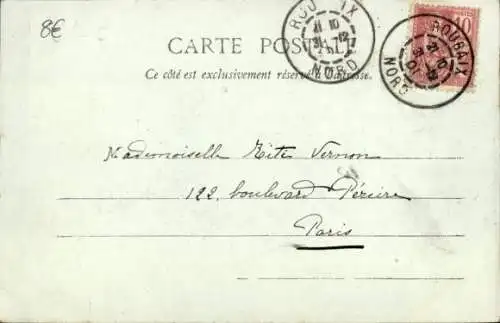 8€
CARTE POSTALE
Ce côté est exclusivement réservé à l'adresse.
ROUBAIX
21 10
31 12
01
NORD
10
ROUBAIX
21 10
31 12
01
NORD
Mademoiselle Tité Vernon
122, boulevard Péreire
Paris